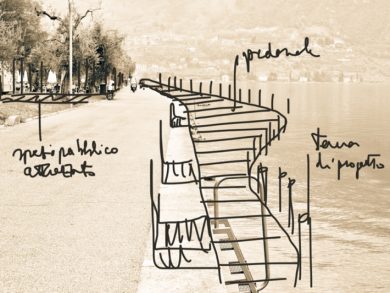 pedonale
spazio pubblico
attrezzato
di progetto